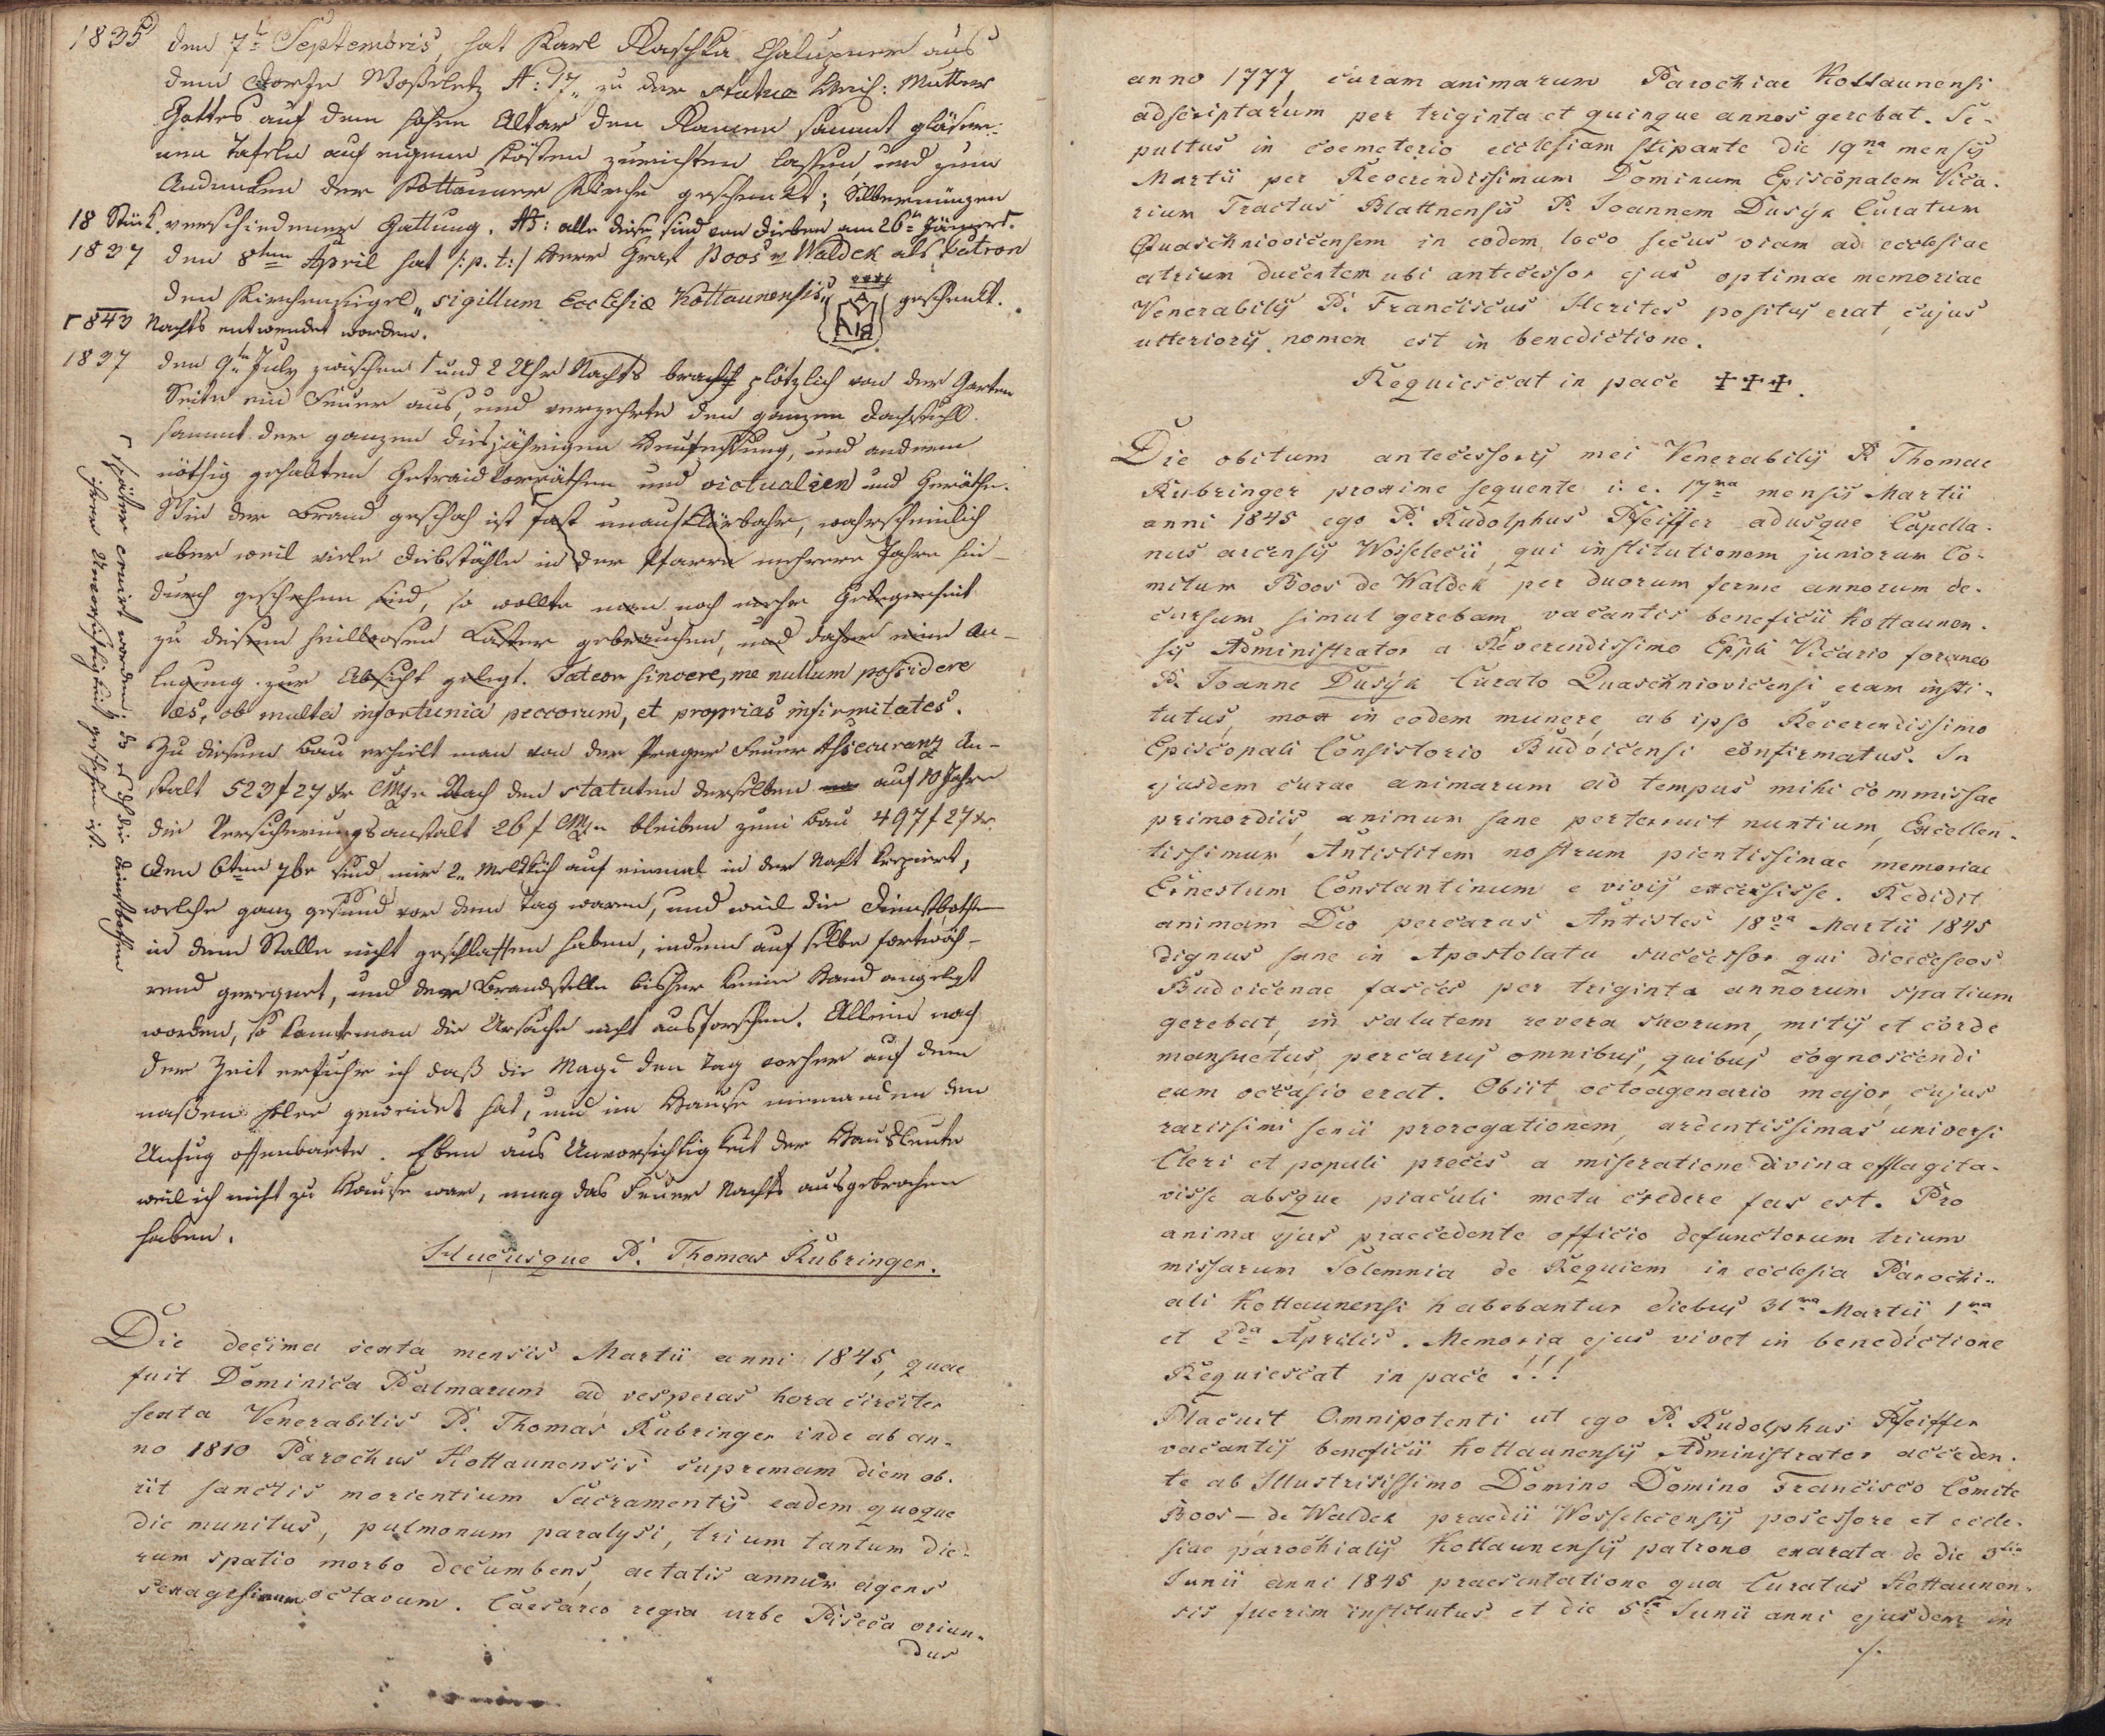 1835 den 7t Septembris, hat Karl Raschka Chalupner aus
dem Dorfe Woßeletz N: 17„ zu der statue Weih: Mutter
Gottes auf dem hohen Altar den Ramen sammt gläser-
nen Tafeln auf eigene Kösten zurichten lassen, und zum
Andenken der Kottauner Kirche geschenkt; Silbermünzen
18 Stück verschiedener Gattung. NB: alle diese sind von Dieben am 26tn Jäner
1837 den 8ten April hat /:p. t:/ Herr Graf Boos v Waldek als Patron
den Kirchensiegel „sigillum Ecclesiæ Kottaunensis" geschenkt.
1843 Nachts entwendet worden.
1837 den 9tn July zwischen 1 und 2 Uhr Nachts brach plötzlich von der Garten
Seite ein Feuer aus, und verzehrte den ganzen Dachstuhl
sammt der ganzen diesjährigen Heufechsung, und andern
nöthig gehabten Getraidvorräthen und victualien und Geräthe.
Wie der Brand geschah ist fast unaufklärbahr, wahrscheinlich
aber weil viele Diebstähle in der Pfarre mehrere Jahre hin-
durch geschehen sind, so wollte man noch mehr Gelegenheit
zu diesem heillosen Laster gebrauchen, und daher eine An-
legung zur Absicht gelegt. Fateor sincere, me nullum possidere
æs, ob multa infortunia peccorum, et proprias infirmitates.
Zu diesem Bau erhielt man von der Prager Feuer Assecuranz An-
stalt 523 f 27 xr CMz. Nach den statuten derselben auf 10 Jahre
die Versicherungsanstalt 26 f CMz. bleiben zum Bau 497 f 27 xr.
Den 6ten 7br sind mir 2„ Melkküh auf einmal in der Nacht krepirt,
welche ganz gesund vor dem Tag waren, und weil die Dienstbothen
in dem Stalle nicht geschlaffen haben, indem auf selbe fortwäh-
rend geregnet, und der Brandstelle bisher keine Hand angelegt
worden, so kannt man die Ursache nicht ausforschen. Allein nach
der Zeit erfuhr ich daß die Magd den Tag vorher auf dem
naßen Klee geweidet hat, und im Hause niemanden den
Unfug offenbarte. Eben aus Unvorsichtigkeit der Hausleute
weil ich nicht zu Hause war, mag das Feuer Nachts ausgebrochen
haben.
Hucusque P. Thomas Kubringer.
später eruirt worden; da es durch die Dienstbothen
ihrer Unvorsichtigkeit geschehen ist.
Die decima sexta mensis Martii anni 1845, quae
fuit Dominica Palmarum ad vesperas hora circiter
sexta Venerabilis P. Thomas Kubringer inde ab an-
no 1810 Parochus Kottaunensis supremam diem ob-
iit sanctis morientium Sacramentis eadem quoque
die munitus, pulmonum paralysi, trium tantum die-
rum spatio morbo decumbens, aetatis annum agens
sexagesimum octavum. Caesareo regia urbe Piseca oriun-
dus
anno 1777, curam animarum Parochiae Kottaunensi
adscriptarum per triginta et quinque annos gerebat. Se-
pultus in coemeterio ecclesiam stipante die 19na mensis
Martii per Reverendissimum Dominum Episcopalem Vica-
rium Tractus Blattnensis P. Joannem Dusýk Curatum
Quaschniovicensem in eodem loco secus viam ad ecclesiae
atrium ducentem ubi antecessor ejus optimae memoriae
Venerabilis P. Franciscus Herites positus erat, cujus
utterioris nomen est in benedictione.
Requiescat in pace ✝✝✝.
Die obitum antecessoris mei Venerabilis P. Thomae
Kubringer proxime sequente i. e. 17ma mensis Martii
anni 1845 ego P. Rudolphus Pfeiffer adusque Capella-
nus arcensis Woiselecii, qui institutionem juniorum Co-
mitum Boos de Waldek per duorum ferme annorum de-
cursum simul gerebam, vacantis beneficii Kottaunen-
sis Administrator a Reverendissimo Eppli Vicario foraneo
P. Joanne Dusýk Curato Quaschniovicensi eram insti-
tutus, mox in eodem munere, ab ipso Reverendissimo
Episcopali Consistorio Budvicensi confirmatus. In
ejusdem curae animarum ad tempus mihi commissae
primordiis, animum sane perterruit nuntium, Excellen-
tissimum Antistitem nostrum pientissimae memoriae
Ernestum Constantinum e vivis excessisse. Redidit
animam Deo percarus Antistes 18va Martii 1845
dignus sane in Apostolatu successor qui dioeceseos
Budvicenae fasces per triginta annorum spatium
gerebat, in salutem revera suorum, mitis et corde
mansuetus, percarus omnibus, quibus cognoscendi
eum occasio erat. Obiit octoagenario major, cujus
rarissimi senii prorogationem, ardentissimas universi
Cleri et populi preces a miseratione divina efflagita-
visse absque piaculi metu credere fas est. Pro
anima ejus praecedente officio defunctorum trium
missarum Solemnia de Requiem in ecclesia Parochi-
ali Kottaunensi habebantur diebus 31ma Martii, 1ma
et 2da Aprilis. Memoria ejus vivet in benedictione
Requiescat in pace!!!
Placuit Omnipotenti ut ego P. Rudolphus Pfeiffer
vacantis beneficii Kottaunensis Administrator acceden-
te ab Illustrisissimo Domino Domino Francisco Comite
Boos – de Waldek praedii Wosselecensis posessore et eccle-
siae parochialis Kottaunensis patrono exarata de die 3tia
Junii anni 1845 praesentatione qua Curatus Kottaunen-
sis fuerim institutus et die 5ta Junii anni ejusdem in
./.